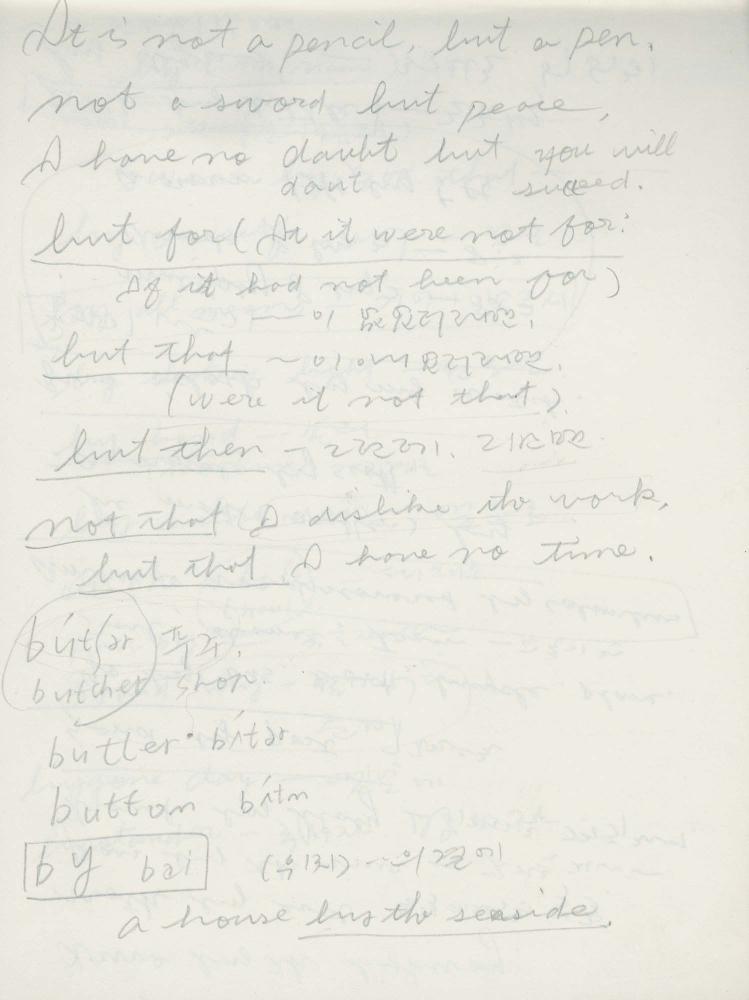 It is not a pencil, but a pen.
not a sword but peace,
I have no doubt but you will
daut succeed.
but for (If it were not for:
If it had not been for)
—이 없으려러면,
but that ~이 아니
(were it not that).
but then —
not that I dislike the work,
but that I have no time.
bútʃər 푸주,
butcher shop.
butler· bʌ́tər
button bʌ́tn
by bai (위치) —의 곁에
a house by the seaside.